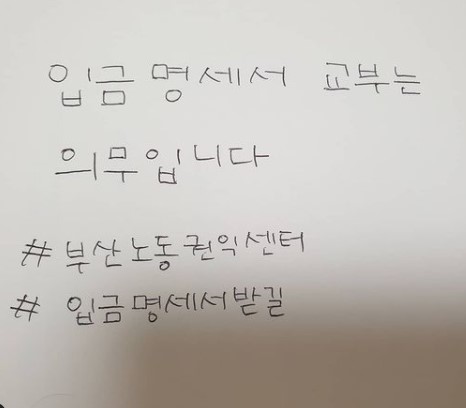 입금명세서 교부는
의무입니다
# 부산노동권익센터
# 입금명세서받길